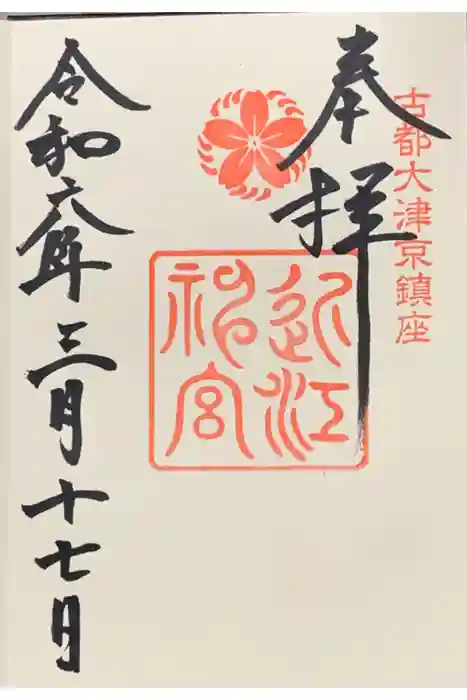 古都大津京鎮座
奉拝
近江
神宮
令和六年三月十七日